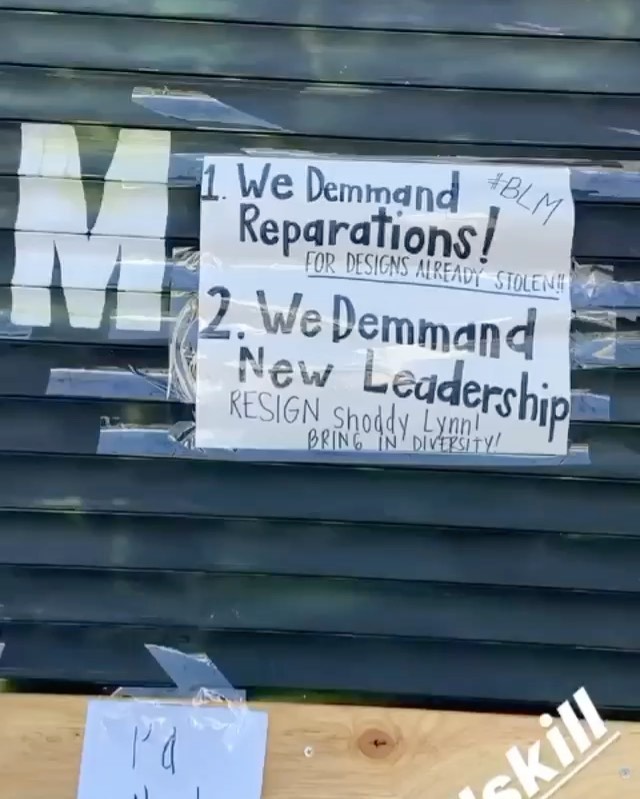 M
1. We Demmand
#BLM
Reparations!
FOR DESIGNS ALREADY STOLEN!!
2. We Demmand
New Leadership
RESIGN Shoddy Lynn!
BRING IN DIVERSITY!
I'd